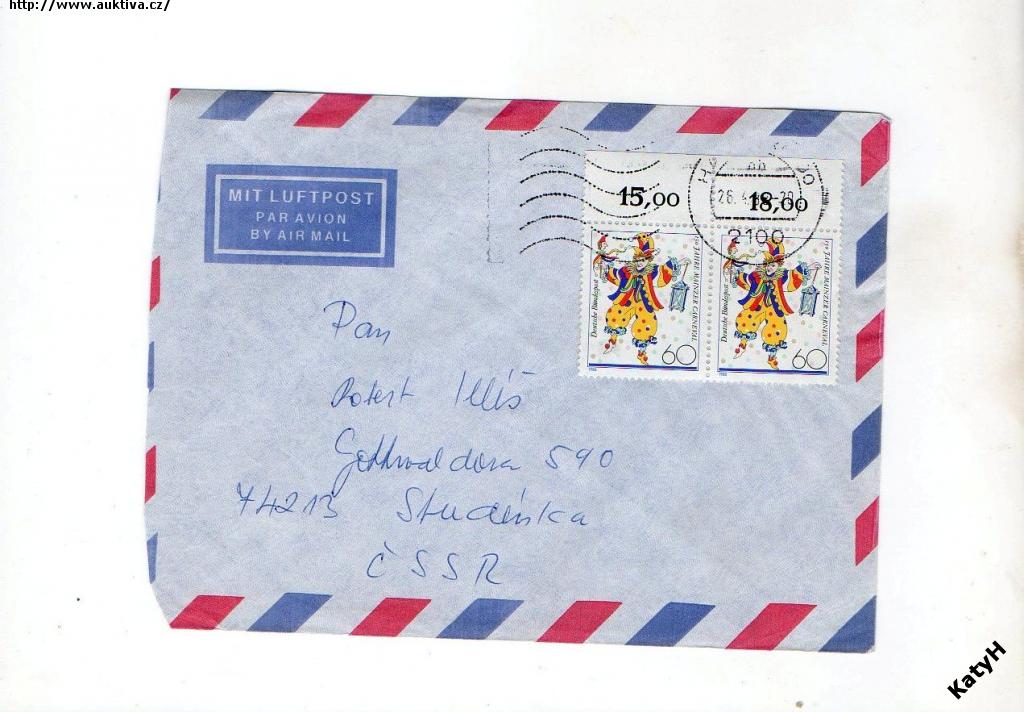 http://www.auktiva.cz/
MIT LUFTPOST
PAR AVION
BY AIR MAIL
15,00
18,00
26.4.
2100
Deutsche Bundespost
150 JAHRE MAINZER CARNEVAL
60
1988
Deutsche Bundespost
150 JAHRE MAINZER CARNEVAL
60
1988
Pan
Robert Illiš
Gottwaldova 590
74213 Studénka
ČSSR
KatyH